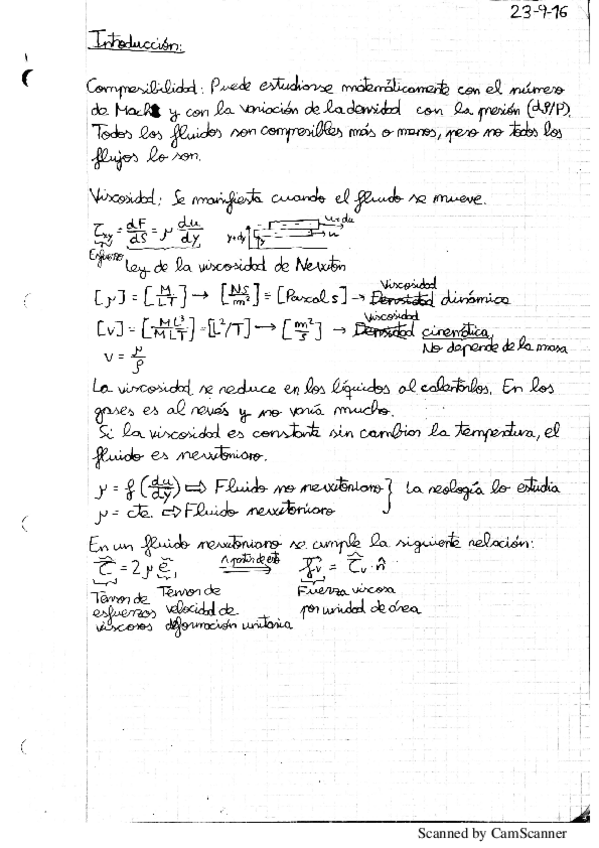 23-9-16
Introducción:
Compresibilidad: Puede estudiarse matemáticamente con el número
de Mach y con la variación de la densidad con la presión (dρ/P).
Todos los fluidos son compresibles más o menos, pero no todos los
flujos lo son.
Viscosidad: Se manifiesta cuando el fluido se mueve.
τxy = dF/dS = μ du/dy   y+dy   y   u+du   u
Esfuerzo
Ley de la viscosidad de Newton
Viscosidad
[μ] = [M/LT] → [NS/m²] = [Pascal s] → Densidad dinámica
Viscosidad
[ν] = [M L³/M L T] = [L²/T] → [m²/s] → Densidad cinemática
No depende de la masa
ν = μ/ρ
La viscosidad se reduce en los líquidos al calentarlos. En los
gases es al revés y no varía mucho.
Si la viscosidad es constante sin cambiar la temperatura, el
fluido es newtoniano.
μ = f (du/dy) ⇨ Fluido no newtoniano } La reología lo estudia
μ = cte. ⇨ Fluido newtoniano
En un fluido newtoniano se cumple la siguiente relación:
τ = 2μ e, A partir de esto → fv = τv · n
Tensor de Tensor de Fuerza viscosa
esfuerzos velocidad de por unidad de área
viscosos deformación unitaria
Scanned by CamScanner